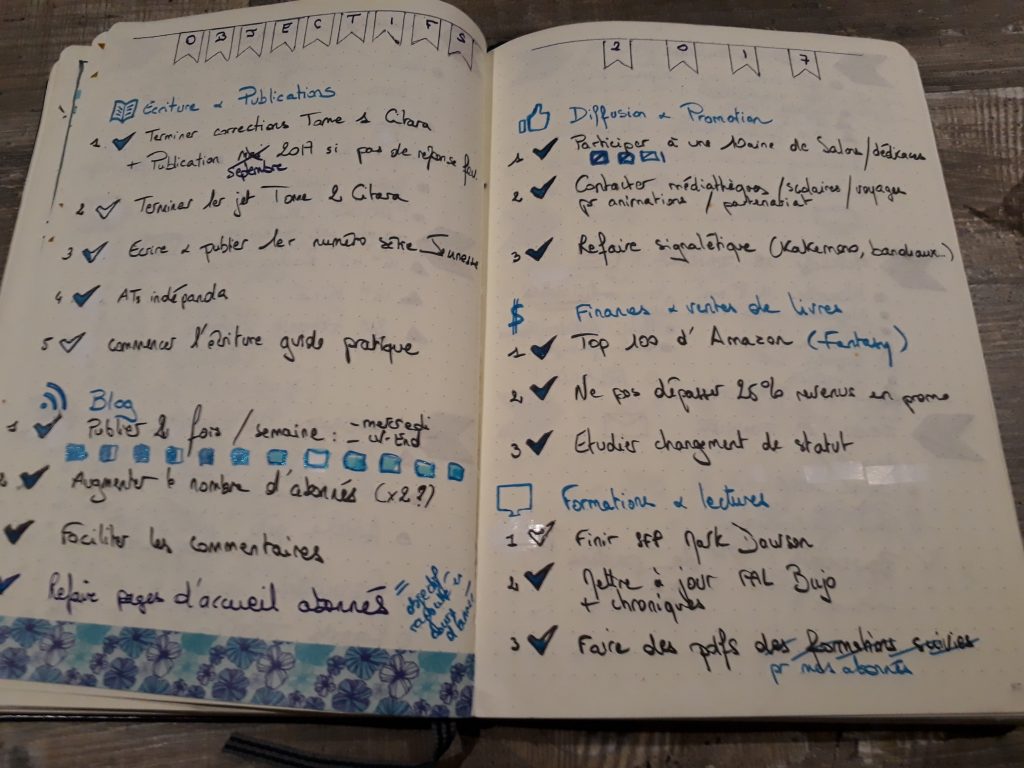 OBJECTIFS
Ecriture & Publications
1 Terminer corrections Tome 1 Citara
+ Publication mai 2017 si pas de réponse fav.
septembre
2 Terminer 1er jet Tome 2 Citara
3 Ecrire & publier 1er numéro série Jeunesse
4 ATs indépanda
5 commencer l'écriture guide pratique
Blog
1 Publier 2 fois / semaine : - mercredi
- W-End
2 Augmenter le nombre d'abonnés (x2 ?)
Faciliter les commentaires
Refaire pages d'accueil abonnés
= objectif
rajouté
cours
d'année
2017
Diffusion & Promotion
1 Participer à une 10aine de Salons/dédicaces
2 Contacter médiathèques/scolaires/voyages
pr animations / partenariat
3 Refaire signalétique (Kakemono, bandeaux...)
$ Finances & ventes de livres
1 Top 100 d'Amazon (Fantasy)
2 Ne pas dépasser 25% revenus en promo
3 Etudier changement de statut
Formations & lectures
1 Finir SFP Mark Dawson
2 Mettre à jour PAL Bujo
+ chroniques
3 Faire des pdfs des formations suivies
pr mes abonnés